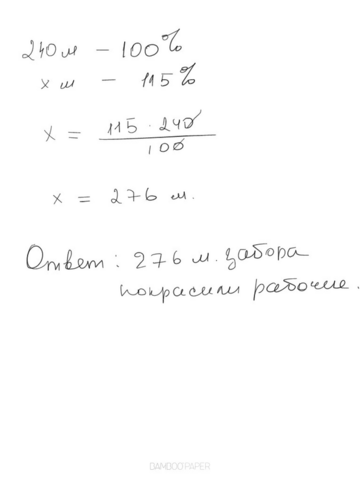 240 м – 100%
х м – 115%
х = 115 · 240 / 100
х = 276 м.
Ответ: 276 м. забора
покрасили рабочие.
DAMDOO®PAPER